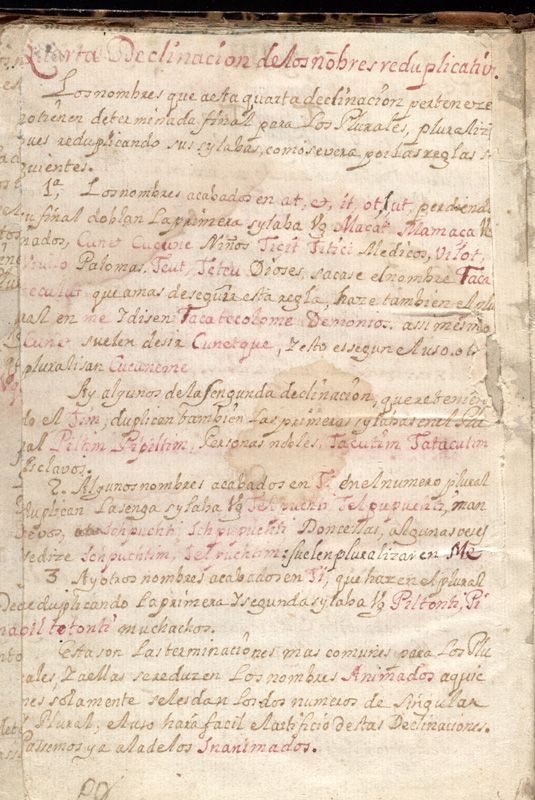 Quarta Declinacion de los nōbres reduplicativ.
Los nombres que a esta quarta declinacion pertenece
no tienen determinada final para los Plurales, pluraliz
pues reduplicando sus sylabas, como severa, por las reglas s
guientes.
1ª, Los nombres acabados en at, et, it, ot, ut, perdiendo
su final doblan la primera sylaba Vg Maçat, Mamaca V
nados, Cunet Cucune Niños Ticit Titici Medicos, Vilot,
Palomas, Teut, Teteu Dioses, sacase el nombre Taca
tecolut, que amas de seguir esta regla, haze tambien el plu
ral en me I disen Tacatecolome Demonios, assi mesmo
Cunet suelen desir Cunetque, I esto es segun el uso, ot
pluralisan Cucuneme
Ay algunos de la sengunda declinacion, que retenien
do el Tim, duplican tambien las primeras sylabas en el Plu
ral Piltim Pipiltim, Personas nobles, Tacutim Tatacutim
Esclavos.
2. Algunos nombres acabados en Ti en el numero plural
duplican la senga sylaba Vg Telpuchti Telpupuchti, man
sevos, Ichpuchti Ichpupuchti Doncellas, algunas veses
se dize Ichpuchtim, Telpuchtim: suelen pluralizar en Me
3 Ay otros nombres acabados en Ti, que hazen el plural
reduplicando la primera y segunda sylaba Vg Piltonti, Pi
piltotonti muchachos.
estas son las terminaciones mas comunes para los Plu
rales, I a ellas se reduzen los nombres Animados a quie
nes solamente seles dan los dos numeros de singular
I Plural; el uso hará facil el artificio destas Declinaciones.
Passemos ya a la de los Inanimados.